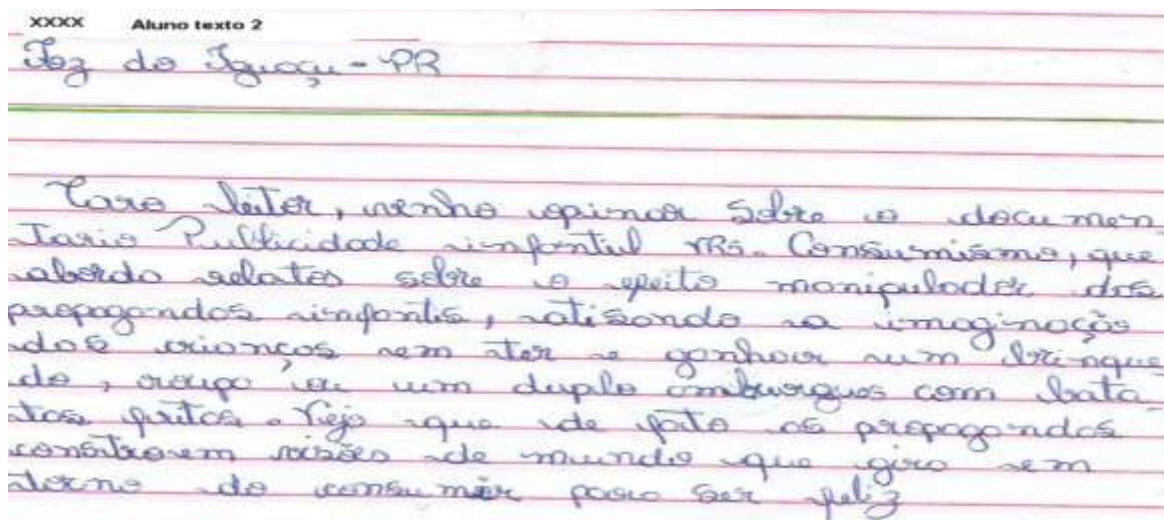 XXXX Aluno texto 2
Foz do Iguaçu - PR
Caro leitor, venho opinar sobre o documen
tario Publicidade infantil vs. Consumismo, que
aborda relatos sobre o efeito manipulador das
propagandas infantis, atisando a imaginação
das crianças em ter e ganhar um brinque
do, roupa ou um duplo amburgues com bata
tas fritas. Vejo que de fato as propagandas
constroem visões de mundo que gira em
torno do consumir para ser feliz